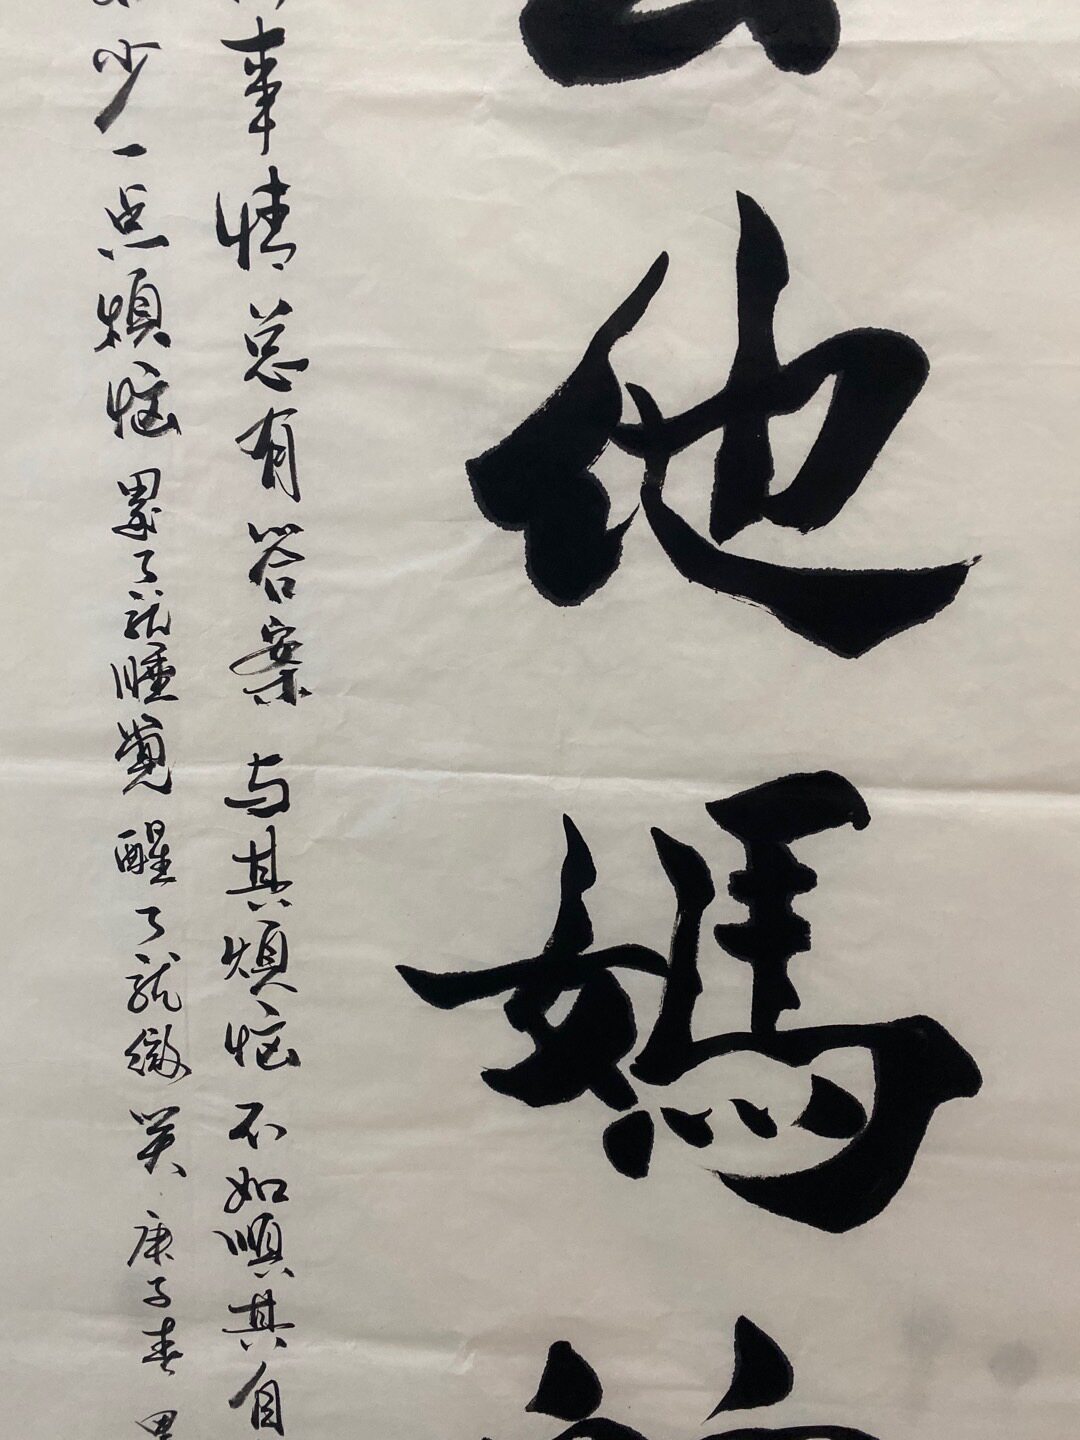 去他媽的
事情总有答案 与其煩恼 不如順其自
少一点煩恼 累了就睡覺 醒了就微笑 庚子春